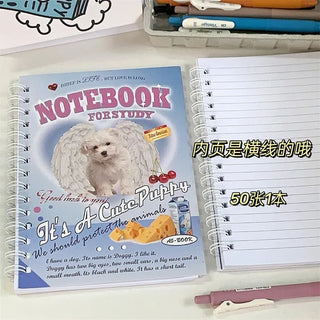 NOTEBOOK
FOR STUDY
Good luck to you!
It's A Cute Puppy
We should protect the animals
AS-BOOK
I have a dog. Its name is Doggy. I like it.
Doggy has two big eyes, two small ears, a big nose and a
small mouth. Its black and white. It has a short tail.
内页是横线的哦
50张1本